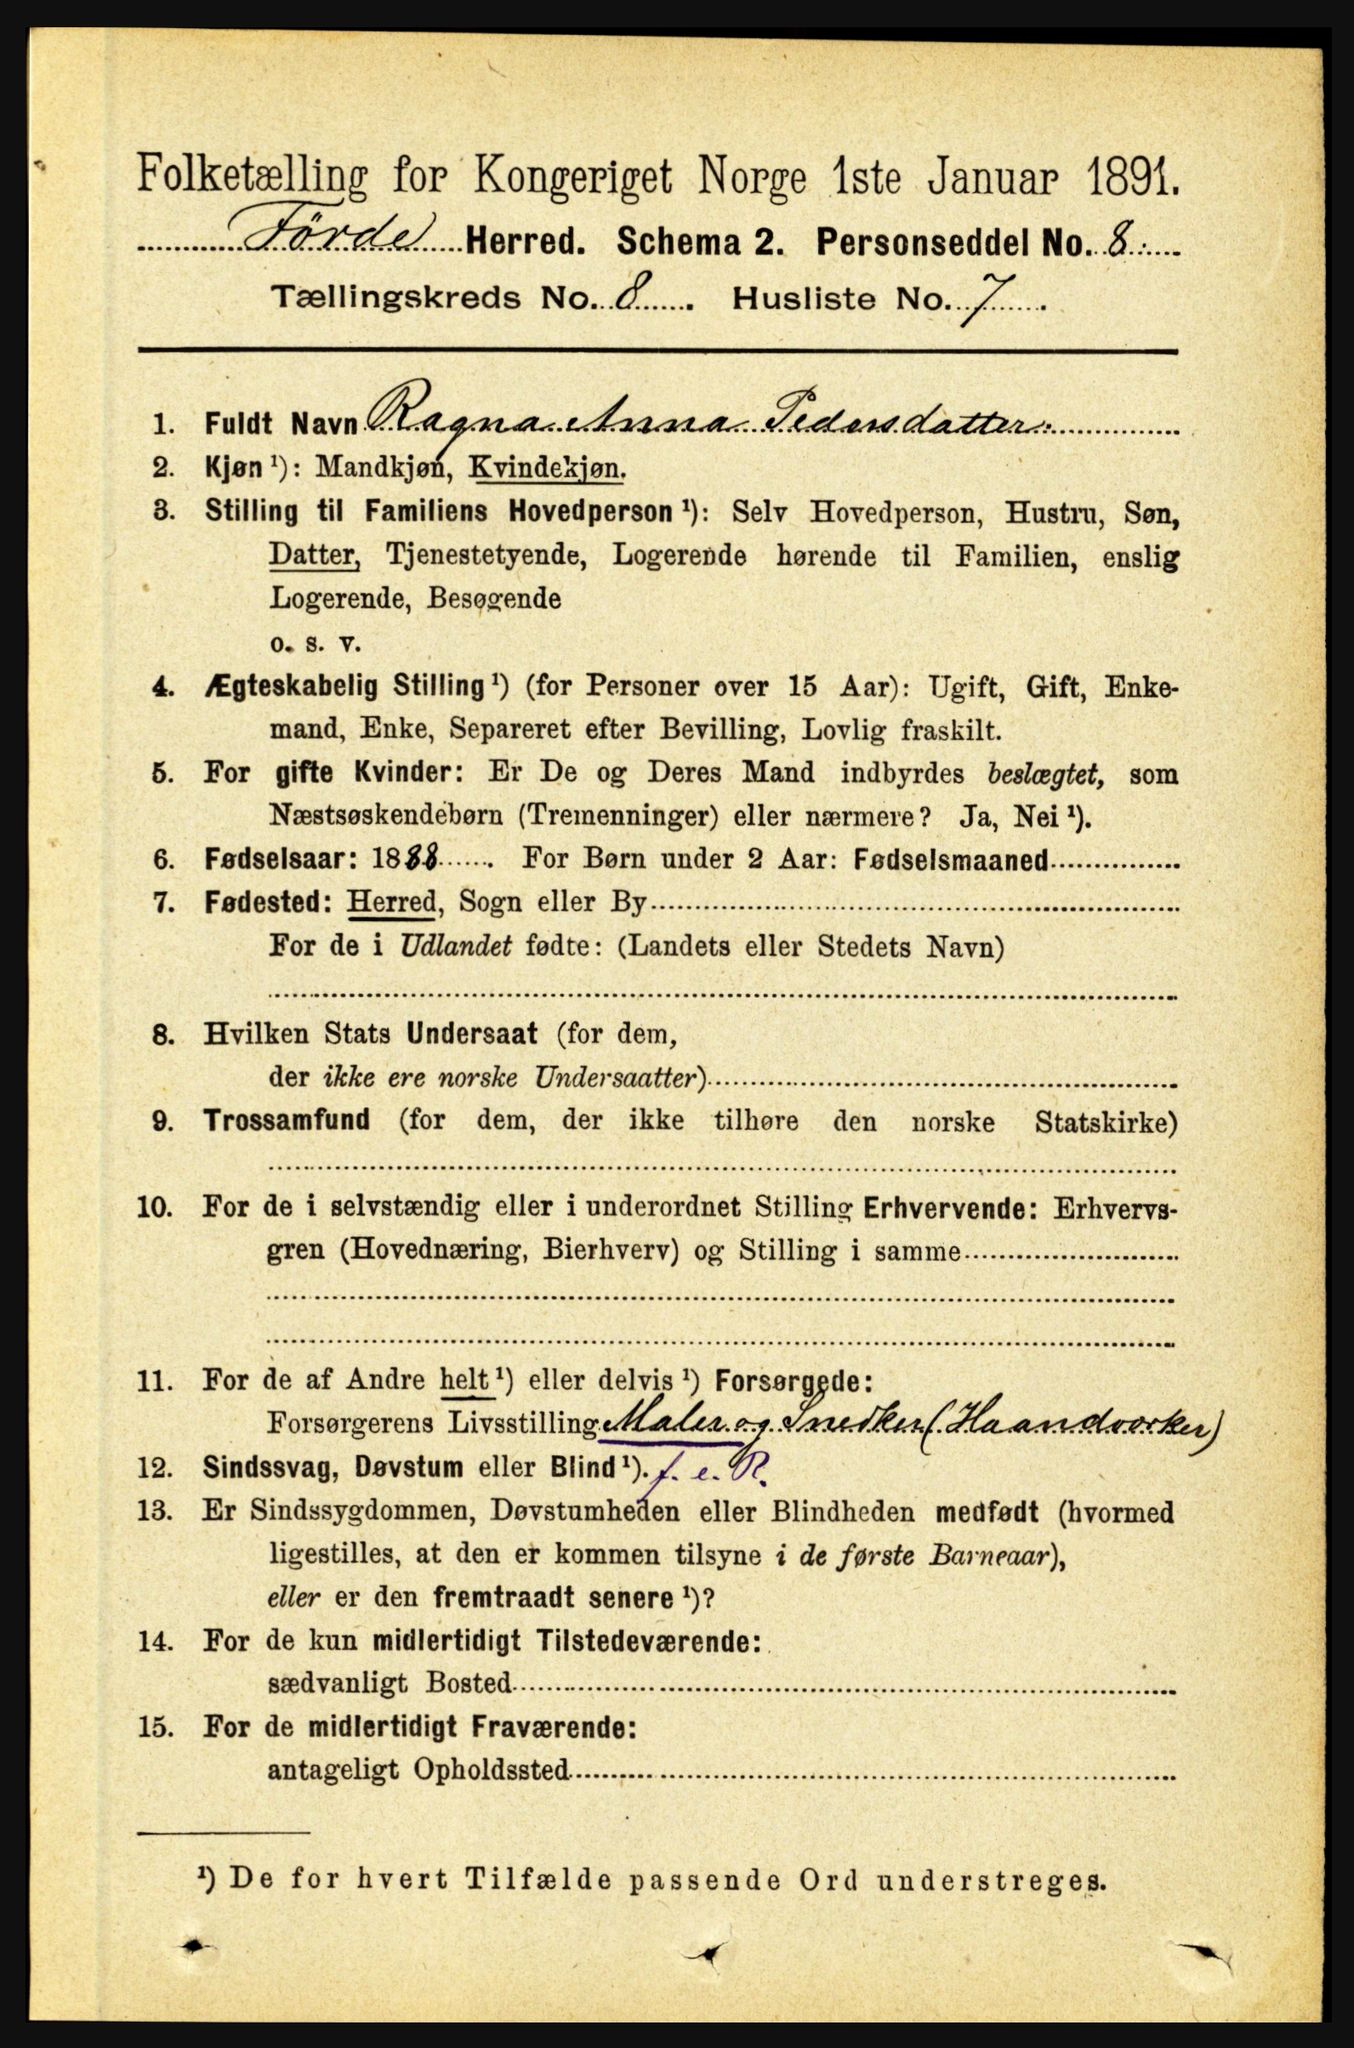 Folketælling for Kongeriget Norge 1ste Januar 1891.
Förde Herred. Schema 2. Personseddel No. 8.
Tællingskreds No. 8. Husliste No. 7.
1. Fuldt Navn Ragna Anna Pedersdatter.
2. Kjøn ¹): Mandkjøn, Kvindekjøn.
3. Stilling til Familiens Hovedperson ¹): Selv Hovedperson, Hustru, Søn,
Datter, Tjenestetyende, Logerende hørende til Familien, enslig
Logerende, Besøgende
o. s. v.
4. Ægteskabelig Stilling ¹) (for Personer over 15 Aar): Ugift, Gift, Enke-
mand, Enke, Separeret efter Bevilling, Lovlig fraskilt.
5. For gifte Kvinder: Er De og Deres Mand indbyrdes beslægtet, som
Næstsøskendebørn (Tremenninger) eller nærmere? Ja, Nei ¹).
6. Fødselsaar: 1888. For Børn under 2 Aar: Fødselsmaaned
7. Fødested: Herred, Sogn eller By
For de i Udlandet fødte: (Landets eller Stedets Navn)
8. Hvilken Stats Undersaat (for dem,
der ikke ere norske Undersaatter)
9. Trossamfund (for dem, der ikke tilhøre den norske Statskirke)
10. For de i selvstændig eller i underordnet Stilling Erhvervende: Erhvervs-
gren (Hovednæring, Bierhverv) og Stilling i samme
11. For de af Andre helt ¹) eller delvis ¹) Forsørgede:
Forsørgerens Livsstilling Maler og Snedker (Haandværker)
12. Sindssvag, Døvstum eller Blind ¹). f. e. R.
13. Er Sindssygdommen, Døvstumheden eller Blindheden medfødt (hvormed
ligestilles, at den er kommen tilsyne i de første Barneaar),
eller er den fremtraadt senere ¹)?
14. For de kun midlertidigt Tilstedeværende:
sædvanligt Bosted
15. For de midlertidigt Fraværende:
antageligt Opholdssted
¹) De for hvert Tilfælde passende Ord understreges.